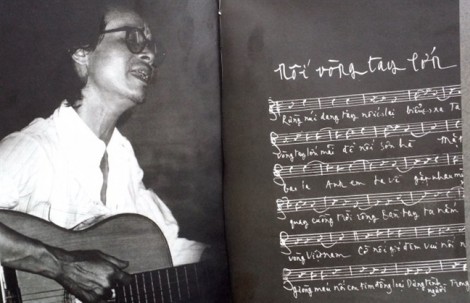 Nối vòng tay lớn
Rừng núi dang tay nối lại biển xa Ta
vòng tay lớn mãi để nối sơn hà
bao la Anh em ta về gặp nhau
quay cuồng trời rộng Bàn tay ta nắm
vòng Việt nam Cờ nối gió đêm vui nối
giòng máu nối con tim đồng loại Dựng tình người Trong